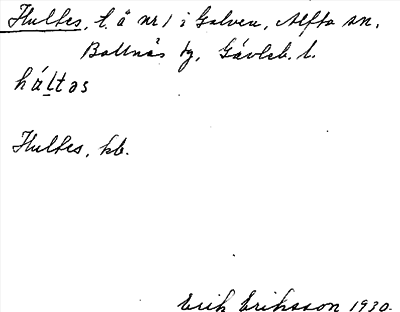 Hultes, l. å nr 1 i Galven, Alfta sn,
Bollnäs tg, Gävleb. l.
háltəs
Hultes, kb.
Erik Eriksson 1930.